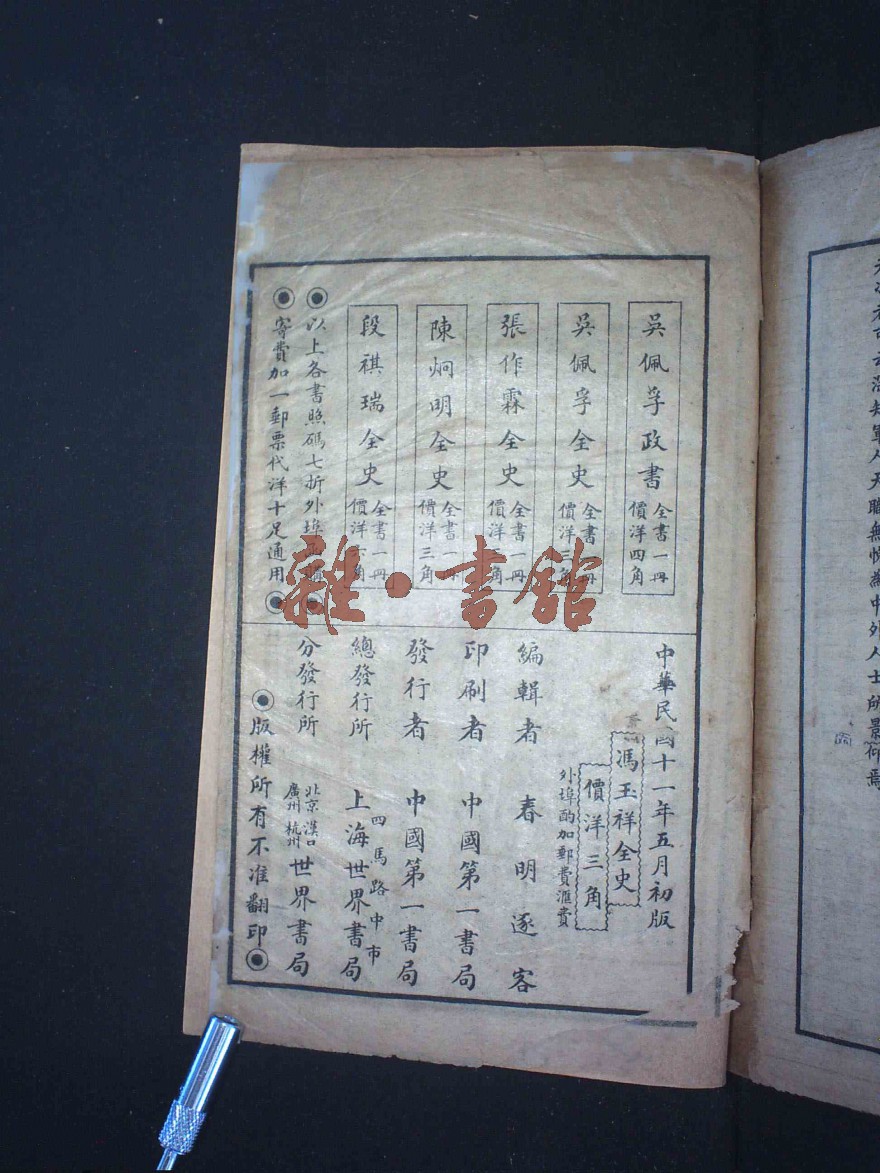 吳佩孚政書 全書一冊 價洋四角
吳佩孚全史 全書一冊 價洋三角
張作霖全史 全書一冊 價洋三角
陳炯明全史 全書一冊 價洋三角
段祺瑞全史 全書一冊 價洋六角
以上各書照碼七折外埠函購
寄費加一郵票代洋十足通用
雜·書館
中華民國十一年五月初版
馮玉祥全史
價洋三角
外埠酌加郵費滙費
編輯者 春明逐客
印刷者 中國第一書局
發行者 中國第一書局
四馬路中市
總發行所 上海世界書局
分發行所 北京 漢口 廣州 杭州 世界書局
版權所有不准翻印
軍人天職無愧為中外人士所景仰焉